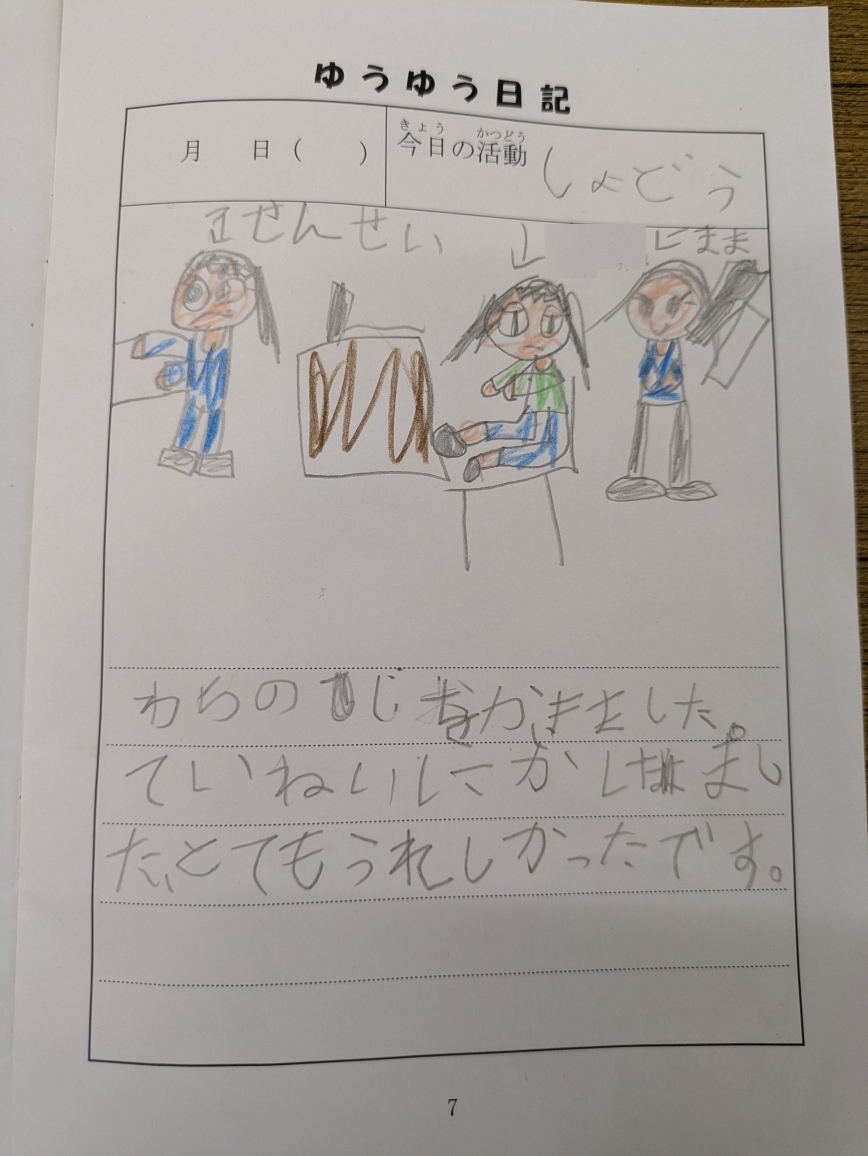 ゆうゆう日記
月 日( )
きょう かつどう
今日の活動 しょどう
せんせい
まま
わらのじをかきました。
ていねいにかけまし
た、とてもうれしかったです。
7